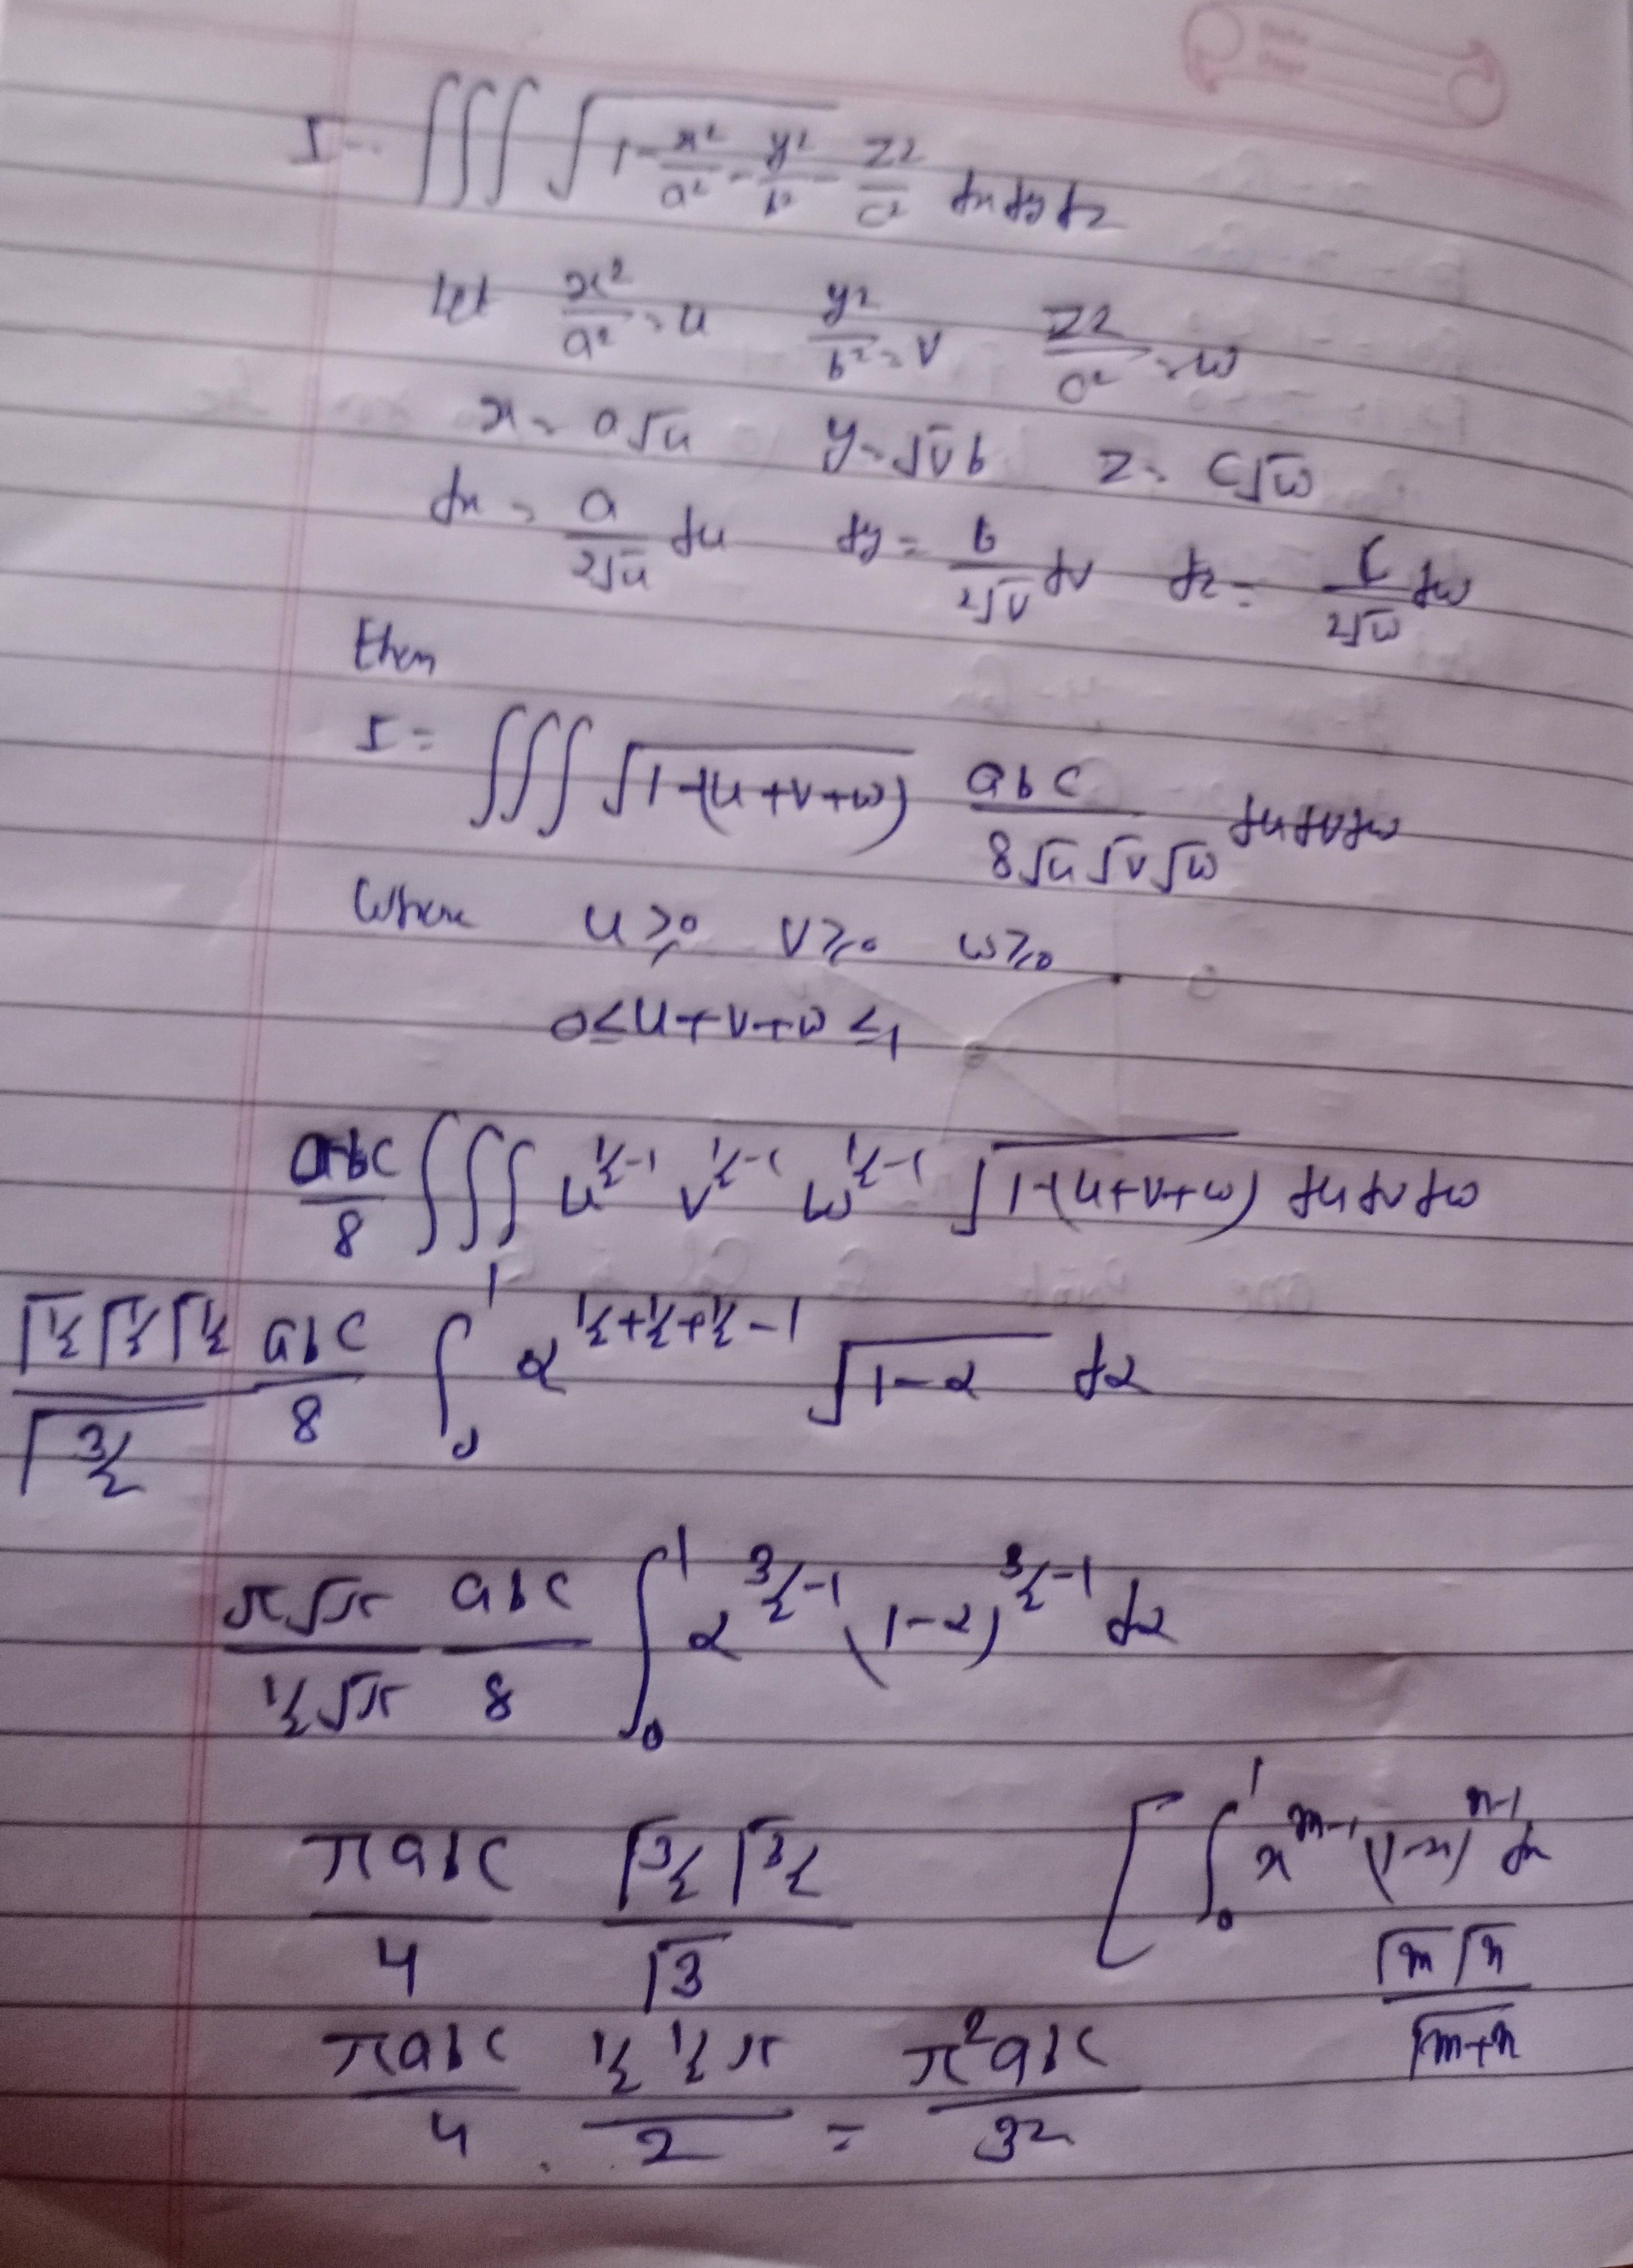 I = ∭ √(1 - x²/a² - y²/b² - z²/c²) dx dy dz
let x²/a² = u y²/b² = v z²/a² = w
x = a√u y = √v b z = c√w
dx = a/(2√u) du dy = b/(2√v) dv dz = c/(2√w) dw
then
I = ∭ √(1-(u+v+w)) abc/(8√u√v√w) du dv dw
Where u≥0 v≥0 w≥0
0≤u+v+w≤1
abc/8 ∭ u^(1/2-1) v^(1/2-1) w^(1/2-1) √(1-(u+v+w)) du dv dw
(Γ1/2 Γ1/2 Γ1/2)/(Γ3/2) abc/8 ∫₀¹ α^(1/2+1/2+1/2-1) √(1-α) dα
(π√π)/(1/2√π) abc/8 ∫₀¹ α^(3/2-1) (1-α)^(3/2-1) dα
πabc/4 (Γ3/2 Γ3/2)/(Γ3) [ ∫₀¹ x^(m-1) (1-x)^(n-1) dx
(Γm Γn)/(Γm+n)
πabc/4 . (1/2 1/2 π)/2 = π²abc/32